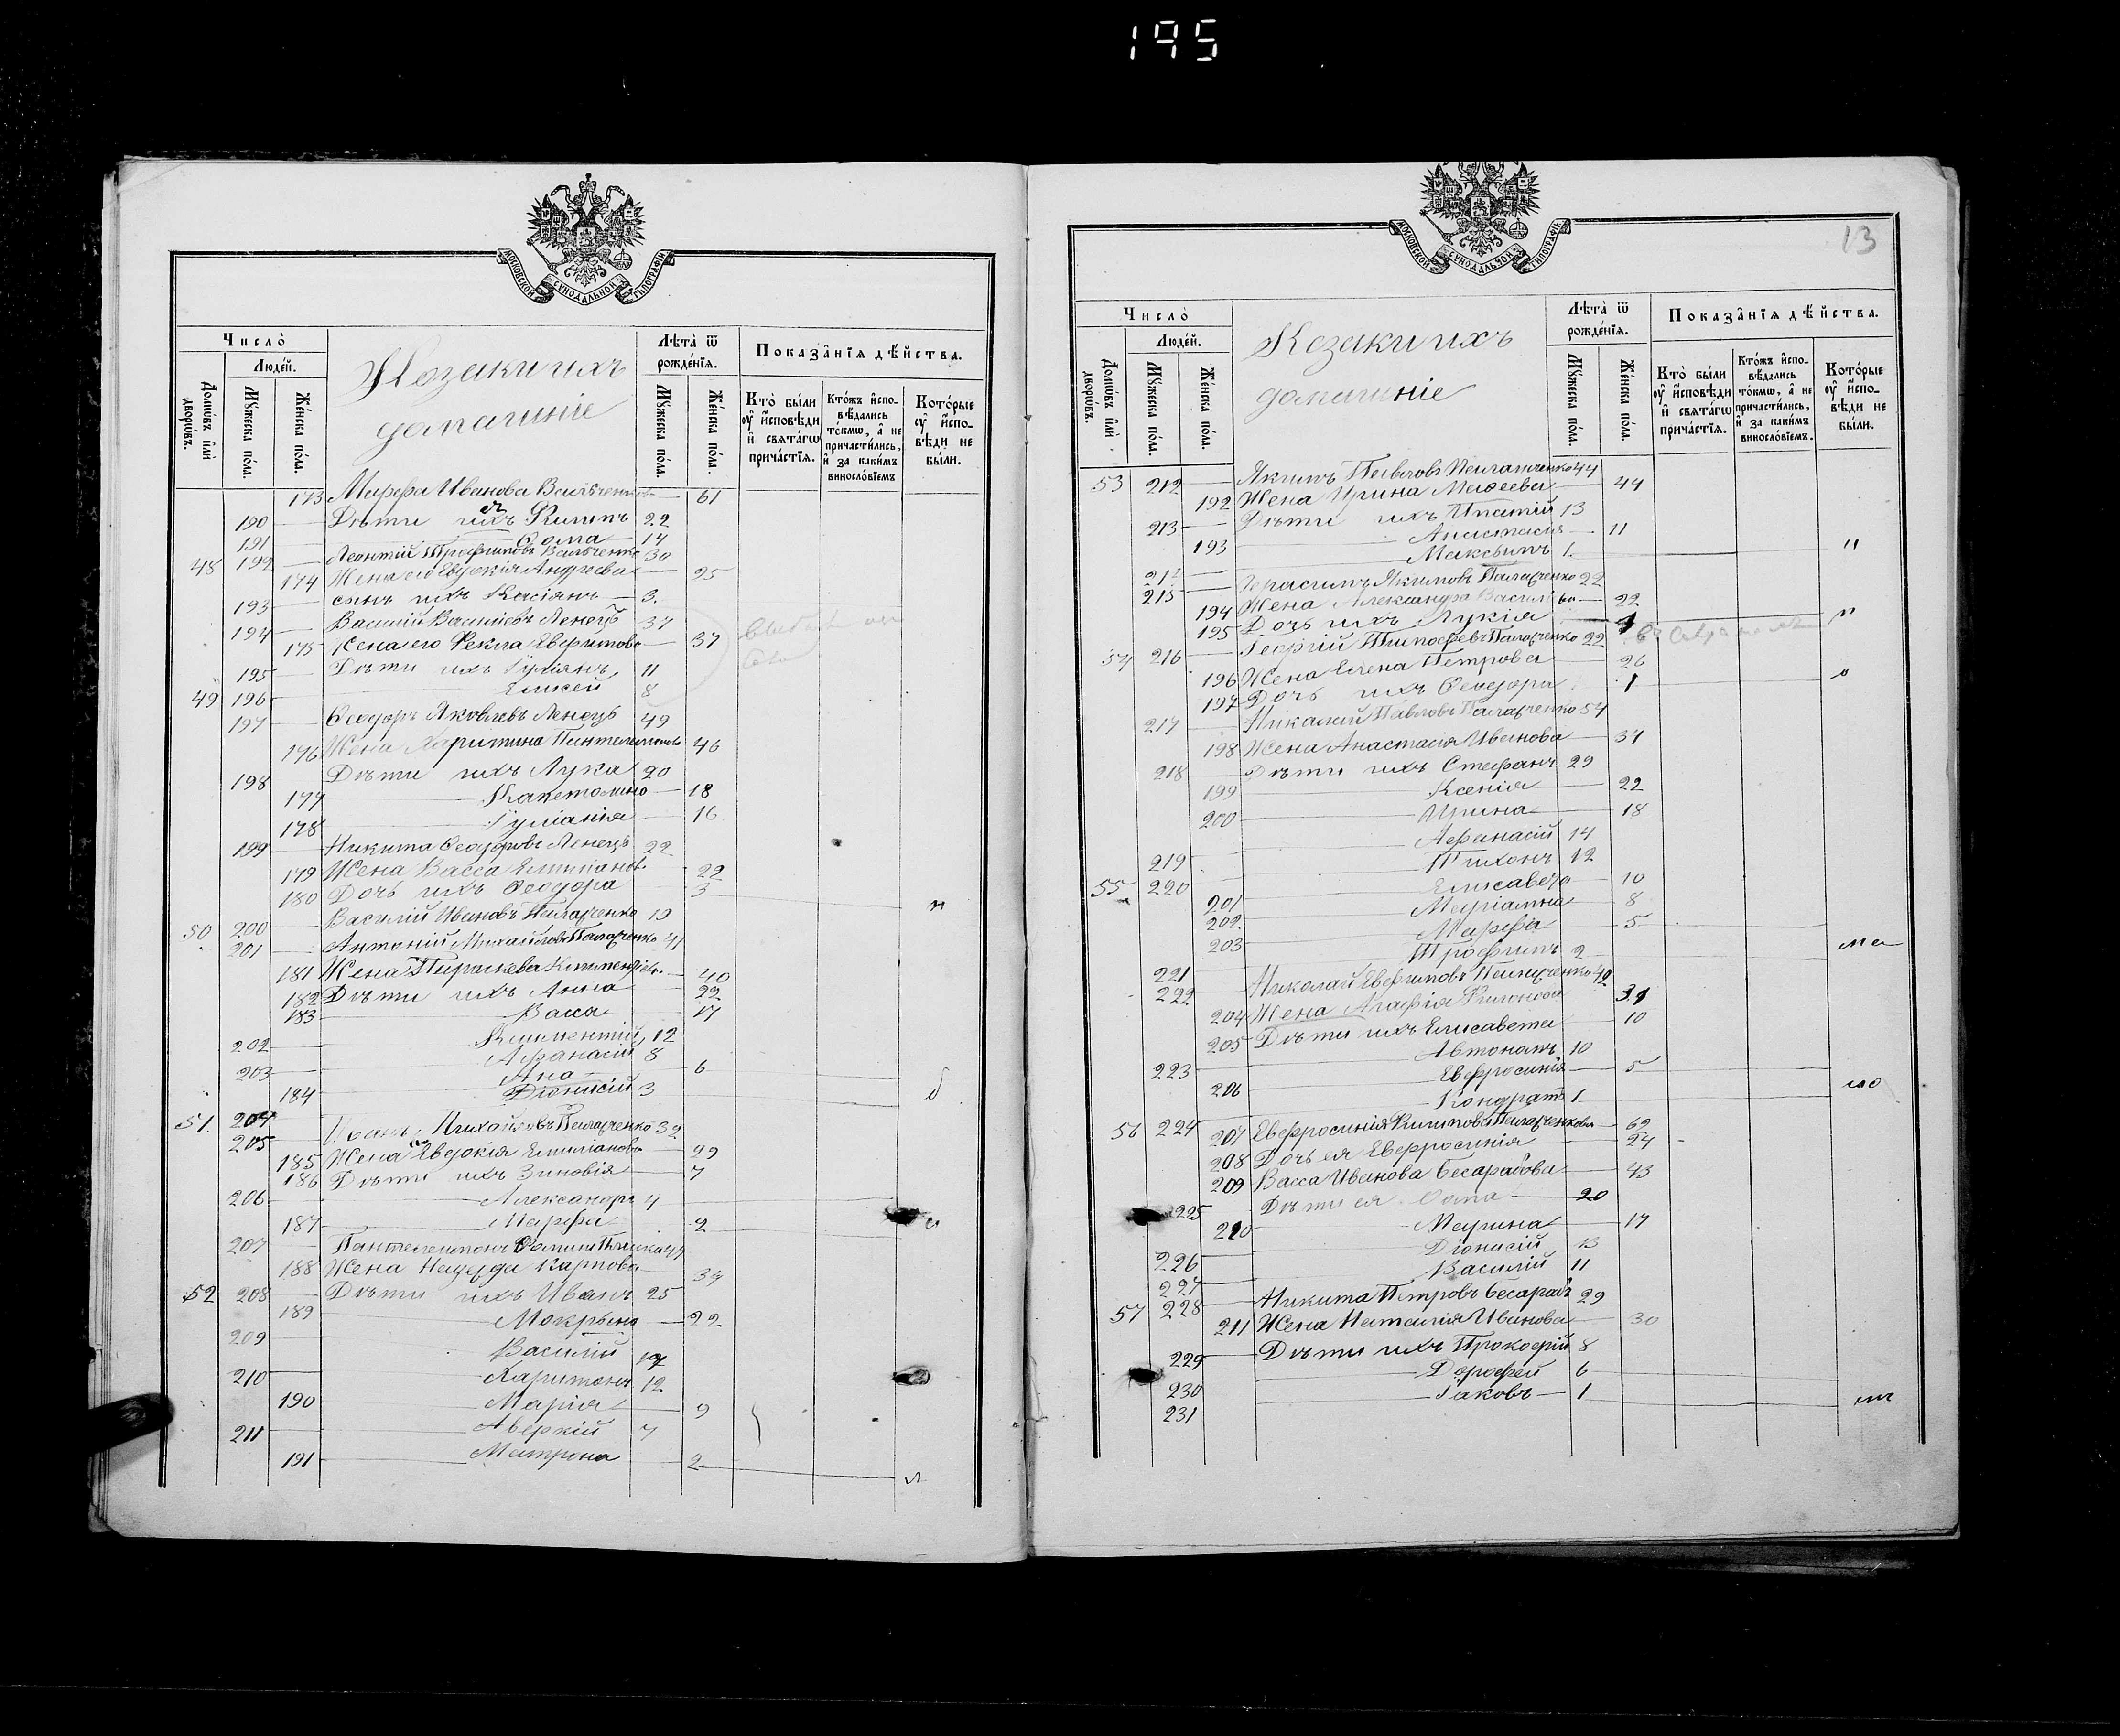 195
МОСКОВСКОЙ СУНОДАЛЬНОЙ ТУПОГРАФІИ
Число̀
Людей.
Домѡвъ и҆лѝ дворѡвъ.
Мꙋжеска пола.
Женска пола.
Козаки ихъ
домашніе
Лѣта̀ ѿ рожденїѧ.
Мꙋжеска пола.
Женска пола.
Показанїѧ дѣйства.
Кто̀ были оу҆ и҆сповѣди и҆ свѧтагѡ причастїѧ.
Ктожъ и҆споведались токмѡ, а҆ не причастились, и҆ за какимъ винословїемъ
Которые оу҆ и҆сповѣди не были.
173 Марфа Иванова 61
190 Дѣти ихъ Филипъ 22
191 Фома 14
48 192 Леонтій Трофимовъ Вакъченко 30
174 Жена его Евдокія Андреева 25
193 сынъ ихъ Касіянъ 3
194 Василій Васильевъ Ленецъ 37
175 Жена его Фекла Ефимова 37
195 Дѣти ихъ Іуліянъ 11
49 196 Елисей 8
197 Ѳеодоръ Яковлевъ Ленецъ 49
176 Жена Харитина Пантелеимонова 46
198 Дѣти ихъ Лука 20
177 18
178 Іуліанія 16
199 Никита Ѳеодоровъ Ленецъ 22
179 Жена Васса Емиліанова 22
180 Дочь ихъ Ѳеодора 3
50 200 Василій Ивановъ Паладченко 19
201 Антоній Михайловъ Паладченко 41
181 Жена Параскева 40
182 Дѣти ихъ Анна 22
183 Васса 17
202 Климентій 12
203 Афанасій 8
Ана 6
184 Діонисій 3
51 204
205 Іоанъ Михайловъ Паладченко 32
185 Жена Евдокія Емиліанова 29
186 Дѣти ихъ Зиновія 7
206 Александръ 4
187 Марфа 2
207 Пантелеимонъ Фоминъ
188 Жена Надежда Карпова 34
52 208 Дѣти ихъ Иванъ 25
189 Мокрына 22
209 Василій 17
210 Харитонъ 12
190 Марія 9
211 Аверкій 7
191 Матрона 2
13
МОСКОВСКОЙ СУНОДАЛЬНОЙ ТУПОГРАФІИ
Число̀
Людей.
Домѡвъ и҆лѝ дворѡвъ.
Мꙋжеска пола.
Женска пола.
Козаки ихъ
домашніе
Лѣта̀ ѿ рожденїѧ.
Мꙋжеска пола.
Женска пола.
Показанїѧ дѣйства.
Кто̀ были оу҆ и҆сповѣди и҆ свѧтагѡ причастїѧ.
Ктожъ и҆споведались токмѡ, а҆ не причастились, и҆ за какимъ винословїемъ.
Которые оу҆ и҆сповѣди не были.
53 212 Якимъ Павловъ Паладченко 44
192 Жена Ирина Моисеева 44
213 Дѣти ихъ Ипатій 13
193 Анастасія 11
Максымъ 1
214
215 Герасимъ Якимовъ Паладченко 22
194 Жена Александра 22
195 Дочь ихъ Лукія 1
54 216 Георгій Тимофеевъ Паладченко 22
196 Жена Елена Петрова 26
197 Дочь ихъ Ѳеодора 1
217 Николай Павловъ Паладченко 54
198 Жена Анастасія Иванова
218 Дѣти ихъ Стефанъ 29
199 Ксенія 22
200 Ирина 18
Афанасій 14
219 Тихонъ 12
55 220 Елисавета 10
201 Маріамна 8
202 Марфа 5
203 Трофимъ 2
221
222 Николай Ефимовъ Паладченко 42
204 Жена Агафія Филипова 31
205 Дѣти ихъ Елисавета 10
Автономъ 10
223 Евфросинія 5
206 Кондратъ 1
56 224 207 Евфросинія Филипова Паладченкова 62
208 Дочь ея Евфросинія 24
209 Васса Иванова Бесарабова 43
225 Дѣти ея Фома 20
210 Марина 17
226 Діонисій 13
227 Василій 11
57 228 Никита Петровъ Бесарабъ 29
211 Жена Наталія Иванова 30
229 Дѣти ихъ Прокофій 8
230 Дорофей 6
231 Іаковъ 1